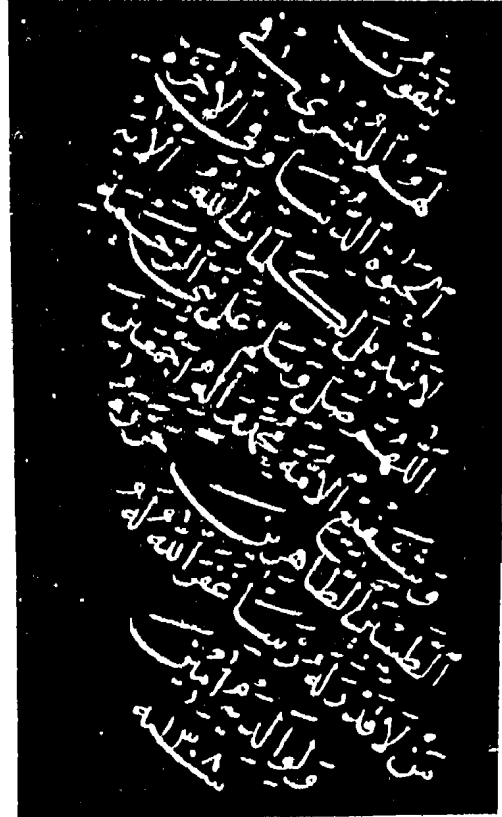 يَتَّقُونَ
لَهُمُ الْبُشْرَىٰ فِي
الْحَيَوٰةِ الدُّنْيَا وَفِي الْآخِرَةِ
لَا تَبْدِيلَ لِكَلِمَاتِ اللَّهِ الْآيَة
اَللّٰهُمَّ صَلِّ وَسَلِّمْ عَلَىٰ نَبِيِّ الرَّحْمَةِ
وَشَفِيعِ الْأُمَّةِ مُحَمَّدٍ وَآلِهِ أَجْمَعِينَ
الطَّيِّبِينَ الطَّاهِرِينَ حَرَّرَهُ
مَنْ لَا قَدْرَ لَهُ غَفَرَ اللَّهُ لَهُ
وَلِوَالِدَيْهِ آمِينَ
سنه ١٣٠٨